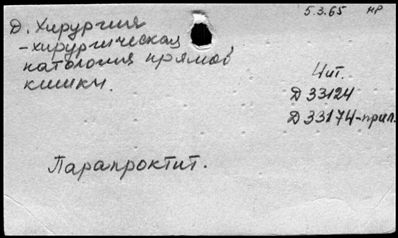 5.3.65 нр
Д. Хирургия
-хирургическая
патология прямой
кишки.
Чит.
Д 33124
Д 33174-прил.
Парапроктит.